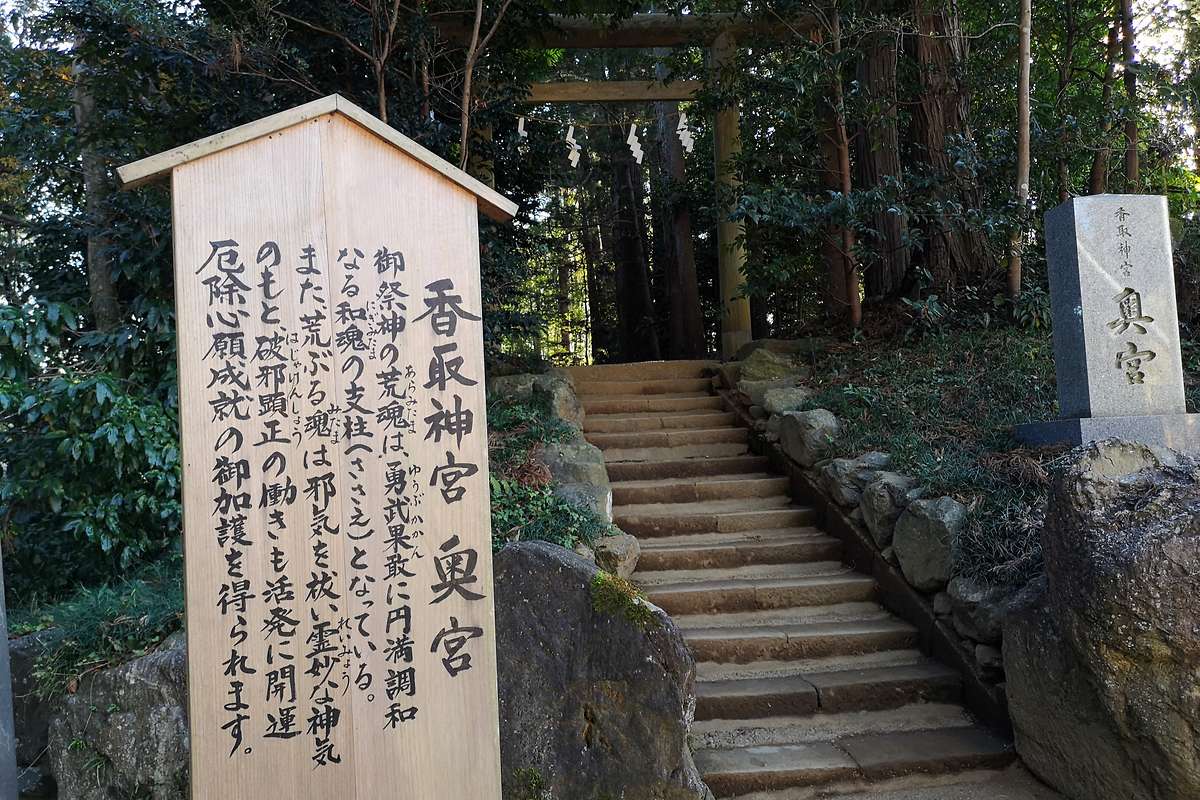 香取神宮 奥宮
御祭神の荒魂は、勇武果敢に円満調和
あらみたま
ゆうぶかかん
なる和魂の支柱(ささえ)となっている。
にぎみたま
また、荒ぶる魂は邪気を祓い霊妙な神気
みたま
れいみょう
のもと、破邪顕正の働きも活発に開運
はじゃけんしょう
厄除心願成就の御加護を得られます。
香取神宮
奥宮